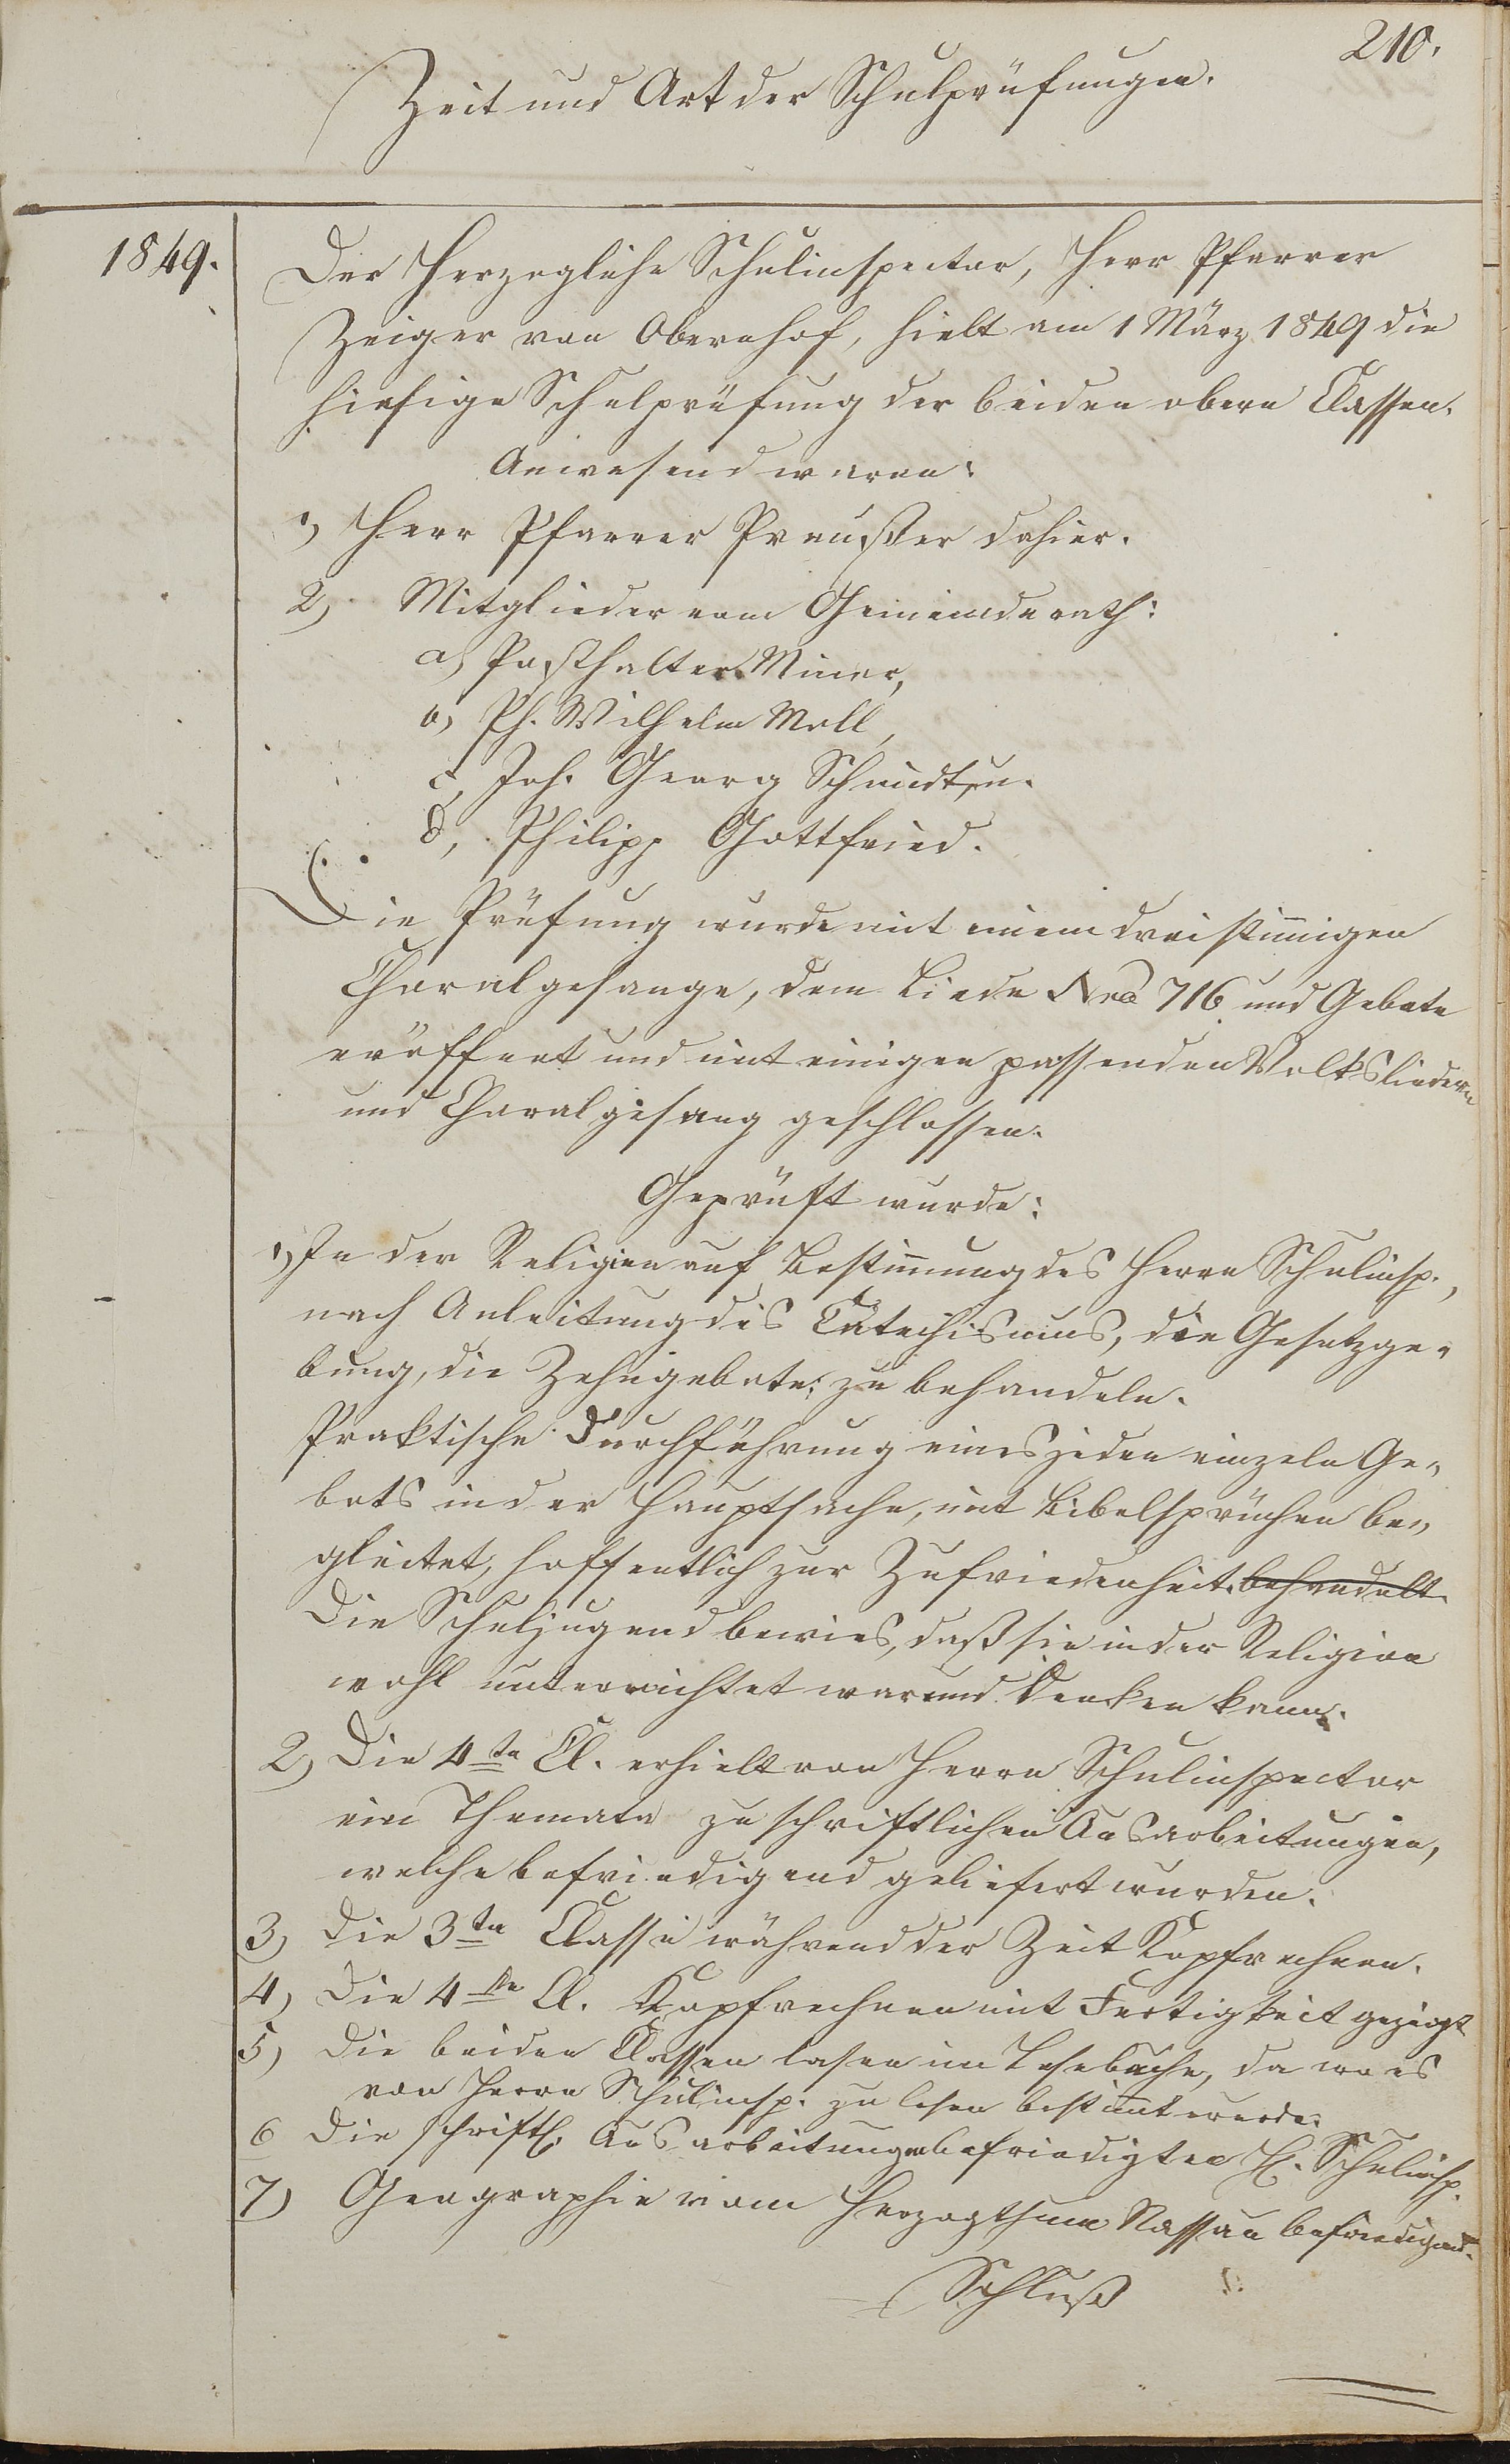 210.
Zeit und Art der Schulprüfungen.
1849.
Der Herzogliche Schulinspector, Herr Pfarrer
Zeiger von Obernhof, hielt am 1 März 1849 die
hiesige Schulprüfung der beiden obern Classen.
Anwesend waren:
1, Herr Pfarrer Preußer dahier.
2, Mitglieder vom Gemeinderath:
a, Posthalter Minor,
b, Ph. Wilhelm Moll,
c, Joh. Georg Schmidt, sen.
d, Philipp Gottfried.
Die Prüfung wurde mit einem dreistim̅igen
Choralgesange, dem Liede Nro 716 und Gebete
eröffnet und mit einigen passenden Volksliedern
und Choralgesang geschlossen.
Geprüft wurde:
1, In der Religion auf Bestim̅ung des Herrn Schulinsp.,
nach Anleitung des Catechismus, die Gesetzge-
bung, die Zehngebote; zu behandeln.
Praktische Durchführung eines jeden einzeln Ge-
bots in der Hauptsache, mit Bibelsprüchen be-
gleitet, hoffentlich zur Zufriedenheit. behandelt.
Die Schuljugend bewies, daß sie in der Religion
wohl unterrichtet war und denken kann.
2, Die 4te Cl. erhielt von Herrn Schulinspector
ein Themata zu schriftlichen Ausarbeitungen,
welche befriedigend geliefert wurden.
3, Die 3te Classe während der Zeit Kopfrechnen.
4, Die 4te Cl. Kopfrechnen mit Fertigkeit gezeigt
5, Die beiden Classen lasen im Lesebuche, da wo es
von Herrn Schulinsp. zu lesen bestim̅t wurde.
6 Die schriftl. Ausarbeitungen befriedigten H. Schulinsp.
7, Geographie vom Herzogthum Nassau befriedigend.
Schluß